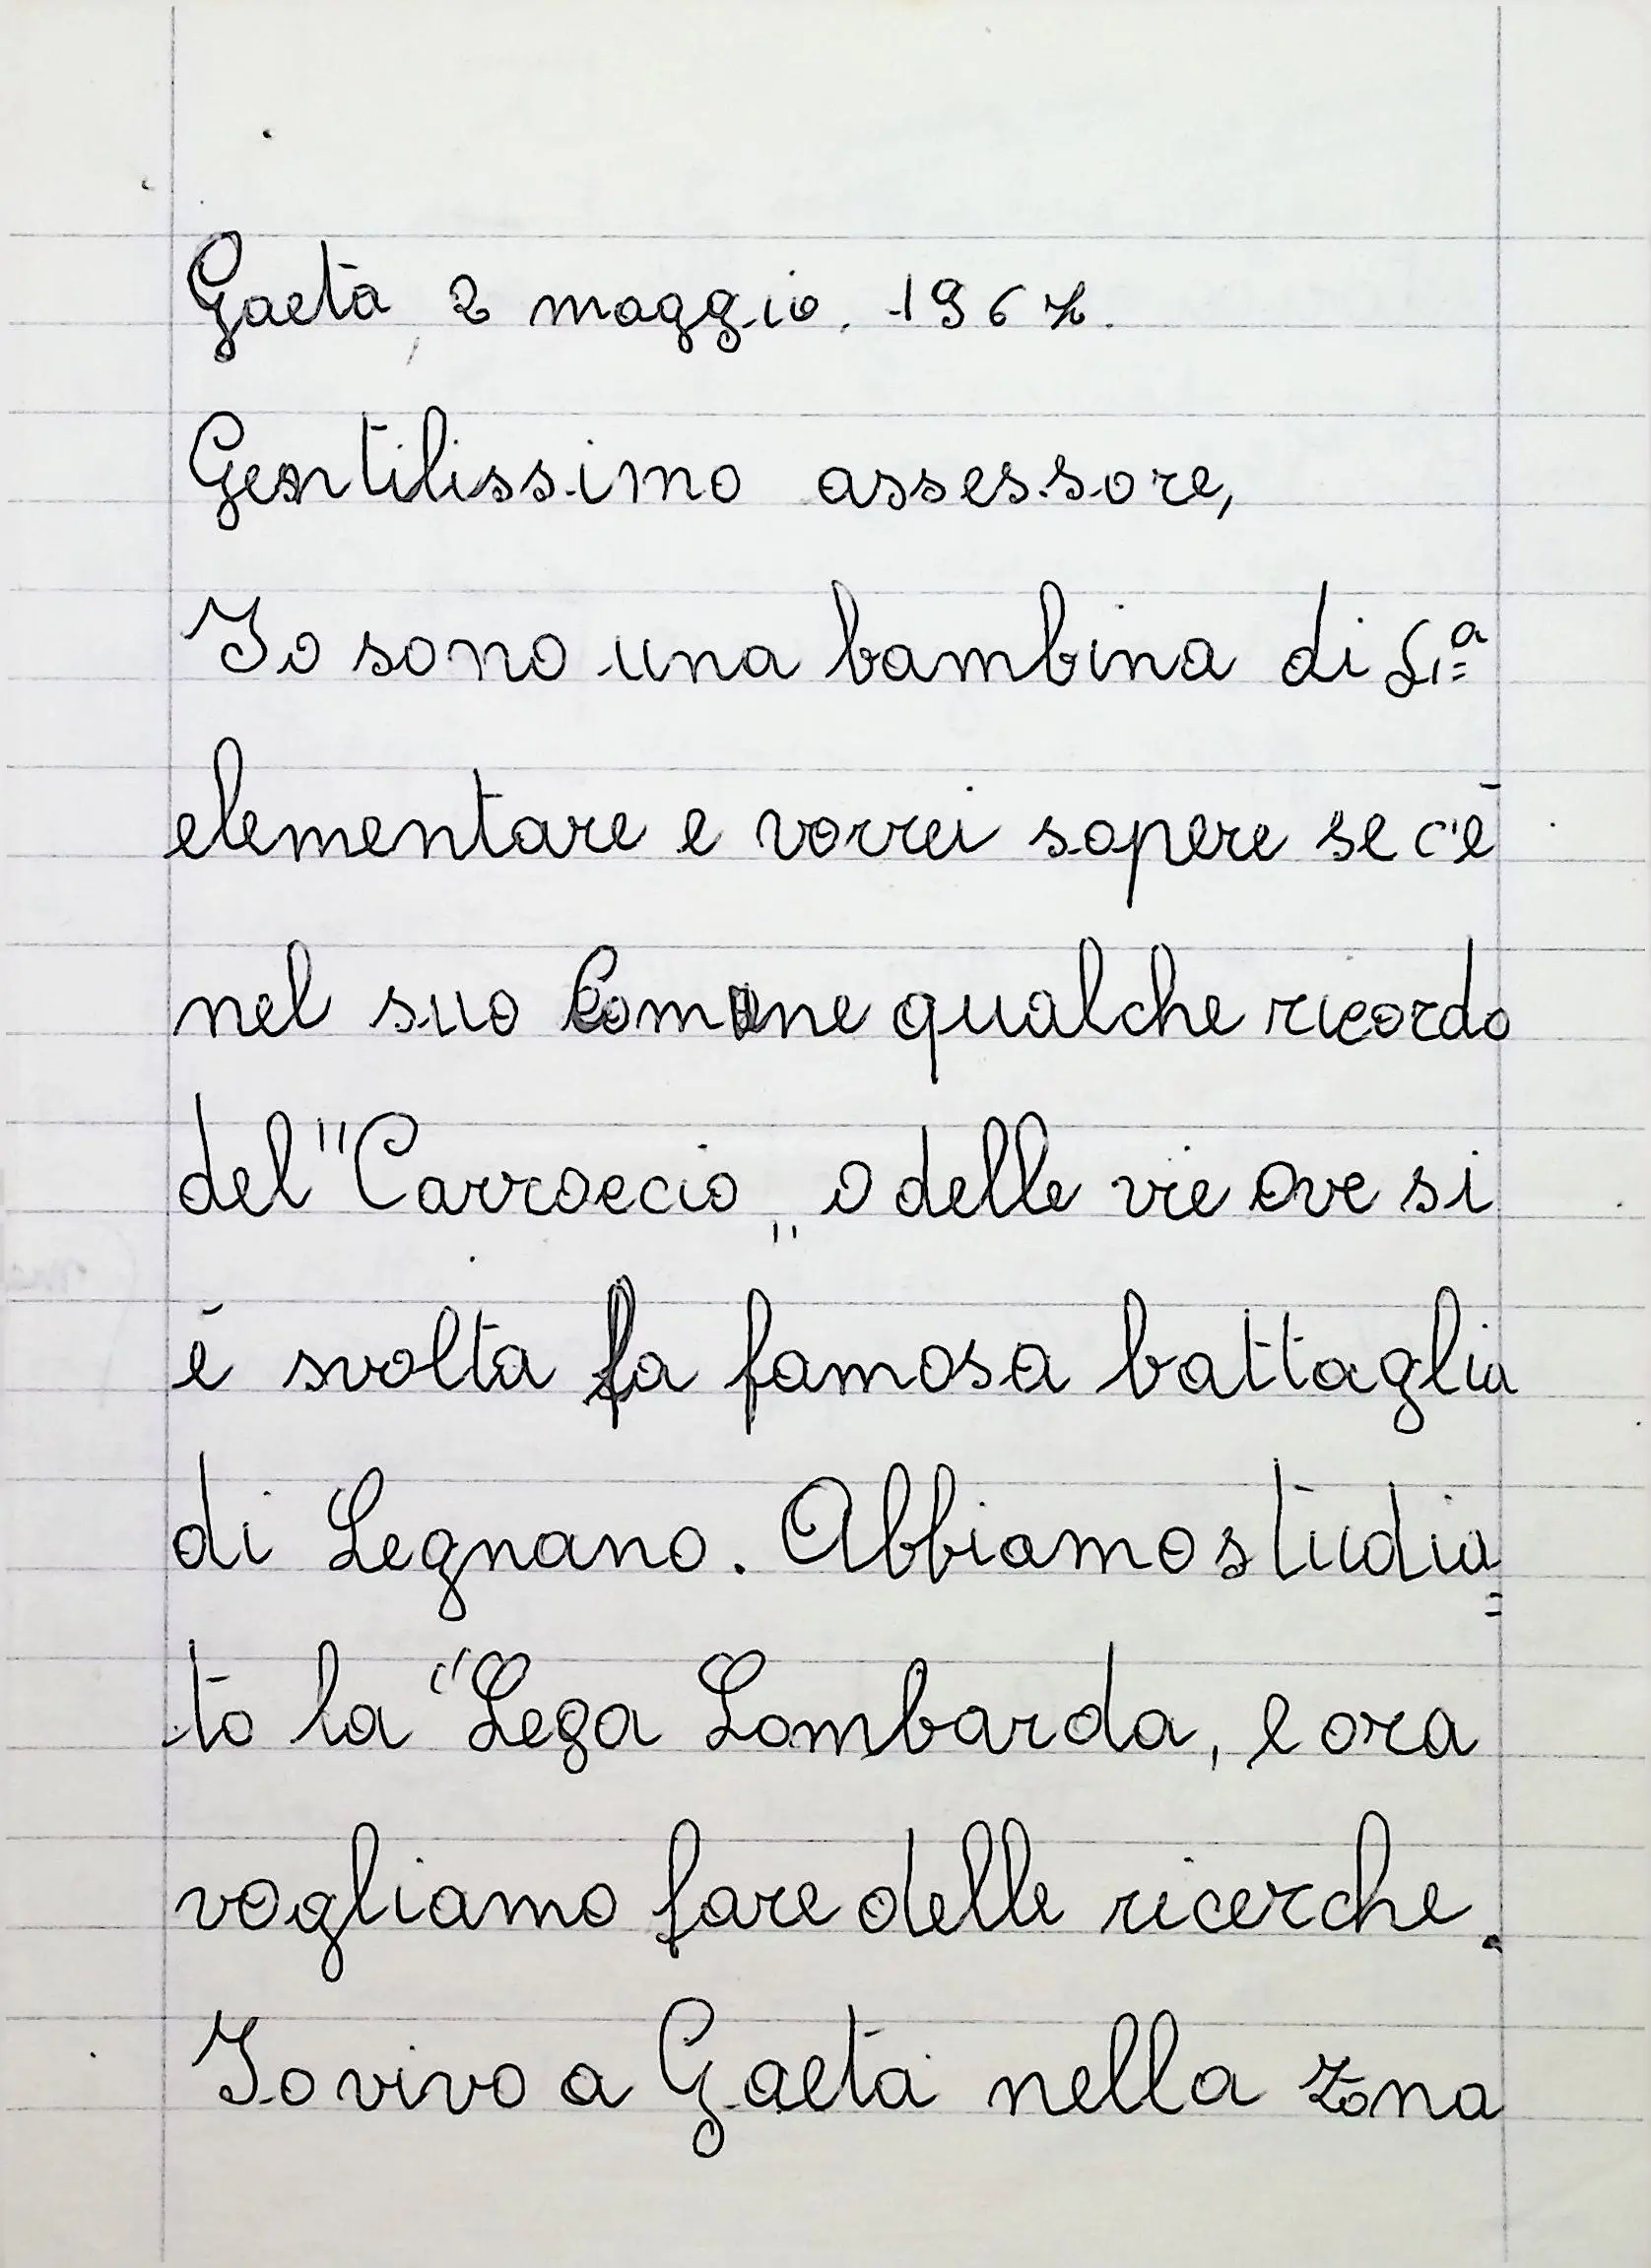 Gaeta, 2 maggio. 1967.
Gentilissimo assessore,
Io sono una bambina di
elementare e vorrei sapere se c'è
nel suo Comune qualche ricordo
del "Carroccio„ o delle vie ove si
è svolta la famosa battaglia
di Legnano. Abbiamo studia=
to la "Lega Lombarda, e ora
vogliamo fare delle ricerche.
Io vivo a Gaeta nella zona